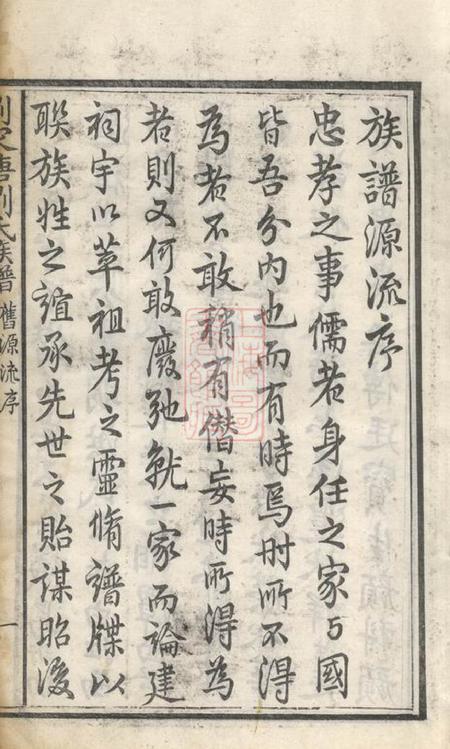 族譜源流序
忠孝之事儒者身任之家与國
皆吾分内也而有時焉時所不得
為者不敢稍有僭妄時所得為
者則又何敢廢弛就一家而論建
祠宇以萃祖考之靈脩譜牒以
聯族姓之誼承先世之貽謀昭後
劉氏族譜 舊源流序 一